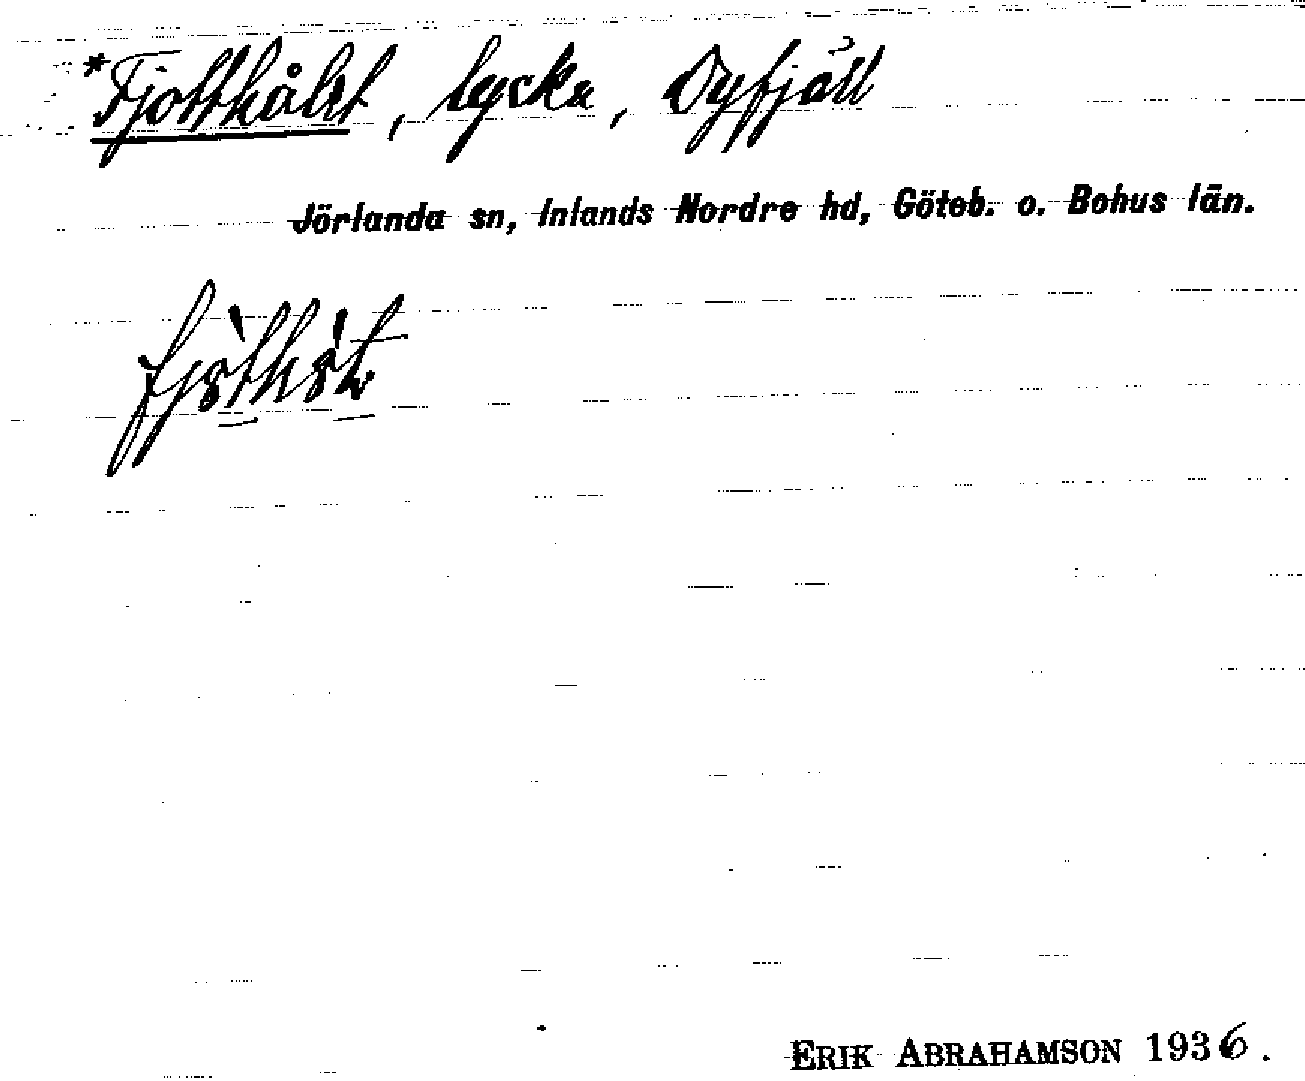 *Fjotthålet, lycka, Dyfjäll
Jörlanda sn, Inlands Nordre hd, Göteb. o. Bohus län.
ERIK ABRAHAMSON 1936.